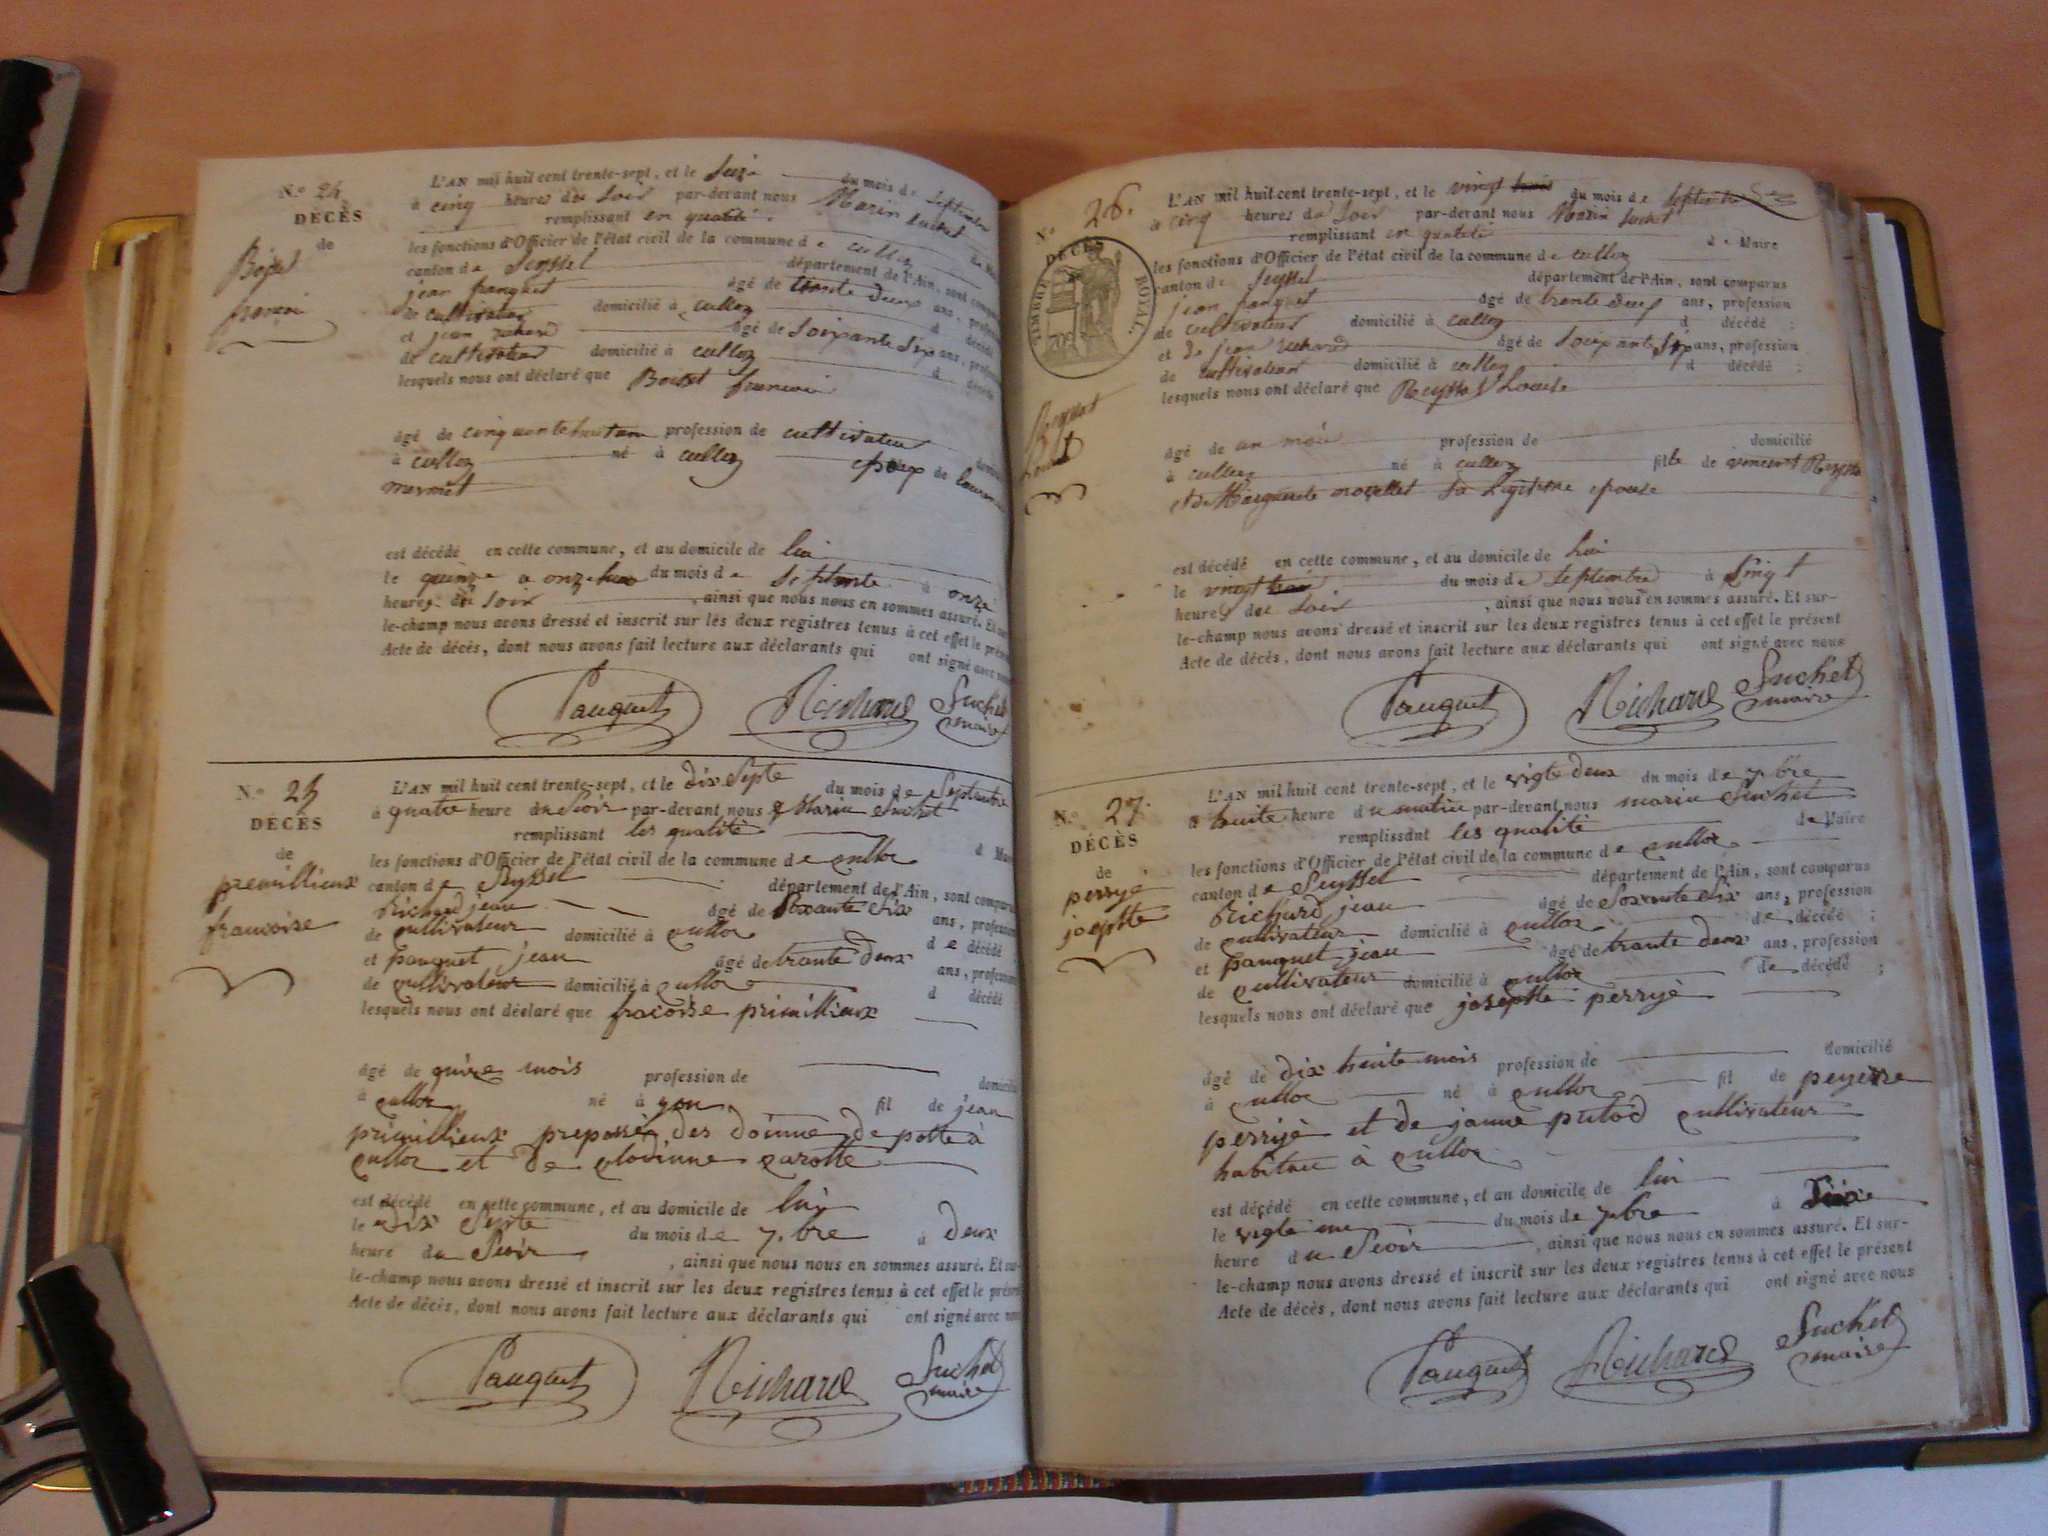 N.o 24
DÉCÈS
de
francoi
L'AN mil huit cent trente-sept, et le Seize du mois de Septembre
à cinq heures du Soir par-devant nous Marin Suchet
remplissant en qualité
les fonctions d'Officier de l'état civil de la commune de culloz de
canton de Seyssel département de l'Ain, sont
jean panquet âgé de trente deux ans,
de cultivateur domicilié à culloz d décédé
et jean richard âgé de Soixante Six ans,
de cultivateur domicilié à culloz d décédé
lesquels nous ont déclaré que francoi
âgé de cinquante huit ans profession de cultivateur
à culloz né à culloz epoux de
mermet
est décédé en cette commune, et au domicile de lui
le quinze a onze du mois de Septembre à onze
heures du Soir, ainsi que nous nous en sommes assuré. Et
le-champ nous avons dressé et inscrit sur les deux registres tenus à cet effet le
Acte de décès, dont nous avons fait lecture aux déclarants qui ont signé avec
Pauquet Richard Suchet
maire
N.o 25
DÉCÈS
de
premillieux
francoise
L'AN mil huit cent trente-sept, et le dix Septe du mois de Septembre
à quatre heure du Soir par-devant nous Marin Suchet
remplissant les qualité
les fonctions d'Officier de l'état civil de la commune de culloz d
canton de Seyssel département de l'Ain, sont
Richard jean âgé de Soxante Six ans,
de cultivateur domicilié à culloz de décédé
et panquet jean âgé de trante deux ans,
de cultivateur domicilié à culloz d décédé
lesquels nous ont déclaré que fracoise primillieux
âgé de mois profession de
à culloz né à fil de jean
primillieux preposse des doinne de poste à
culloz et de clodinne carotte
est décédé en cette commune, et au domicile de luy
le dix Septe du mois de 7.bre à deux
heure du Seoir, ainsi que nous nous en sommes assuré. Et
le-champ nous avons dressé et inscrit sur les deux registres tenus à cet effet le
Acte de décès, dont nous avons fait lecture aux déclarants qui ont signé avec
Pauquet Richard Suchet
maire
N.o 26.
DÉCÈS
TIMBRE ROYAL.
70c
L'AN mil huit cent trente-sept, et le vingt trois du mois de Septembre
à cinq heures du Soir par-devant nous Marin Suchet
remplissant en qualité de Maire
les fonctions d'Officier de l'état civil de la commune de culloz
canton de Seyssel département de l'Ain, sont comparus
jean panquet âgé de trente deux ans, profession
de cultivateur domicilié à culloz d décédé ;
et de jean richard âgé de Soixante Six ans, profession
de cultivateur domicilié à culloz d décédé ;
lesquels nous ont déclaré que Louise
âgé de un mois profession de domicilié
à culloz né à culloz fille de vincent
et de Marguerite Sa Légitime epouse
est décédé en cette commune, et au domicile de lui
le vingt trois du mois de Septembre à
heures du Soir, ainsi que nous nous en sommes assuré. Et sur-
le-champ nous avons dressé et inscrit sur les deux registres tenus à cet effet le présent
Acte de décès, dont nous avons fait lecture aux déclarants qui ont signé avec nous
Pauquet Richard Suchet
maire
N.o 27.
DÉCÈS
de
perryé
josephte
L'AN mil huit cent trente-sept, et le vigte deux du mois de 7.bre
à huite heure du matin par-devant nous marin Suchet
remplissant les qualité de Maire
les fonctions d'Officier de l'état civil de la commune de culloz
canton de Seyssel département de l'Ain, sont comparus
Richard jean âgé de Soxante Six ans, profession
de cultivateur domicilié à culloz de décédé ;
et panquet jean âgé de trante deux ans, profession
de cultivateur domicilié à culloz de décédé ;
lesquels nous ont déclaré que josephte perryé
âgé de dix huite mois profession de domicilié
à culloz né à culloz fil de peyerre
perryé et de janne putod cultivateur
habitan à culloz
est décédé en cette commune, et au domicile de lui
le vigte une du mois de 7.bre à Sixe
heure du Seoir, ainsi que nous nous en sommes assuré. Et sur-
le-champ nous avons dressé et inscrit sur les deux registres tenus à cet effet le présent
Acte de décès, dont nous avons fait lecture aux déclarants qui ont signé avec nous
Pauquet Richard Suchet
maire